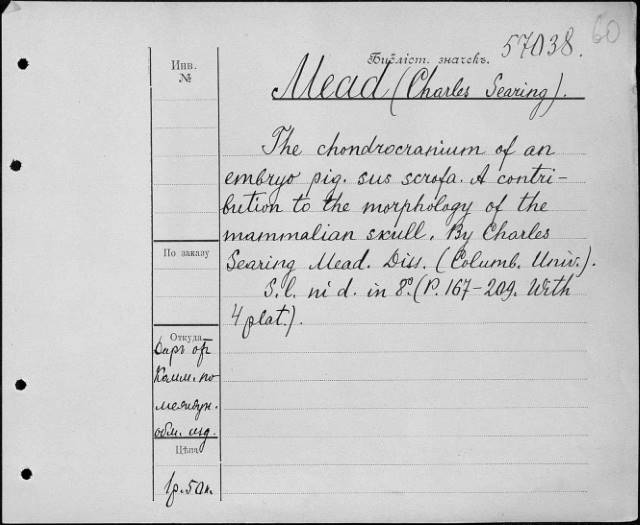 60
57038.
Библіот. значекъ.
Mead (Charles Searing).
The chondrocranium of an
embryo pig. sus scrofa. A contri-
bution to the morphology of the
mammalian skull. By Charles
Searing Mead. Diss. (Columb. Univ.).
S. l. ni d. in 8º. (P. 167-209. With
4 plat.).
Инв.
№
По заказу
Откуда
Даръ от
Комм. по
междун.
обм. изд.
Цѣна
1р.50к.